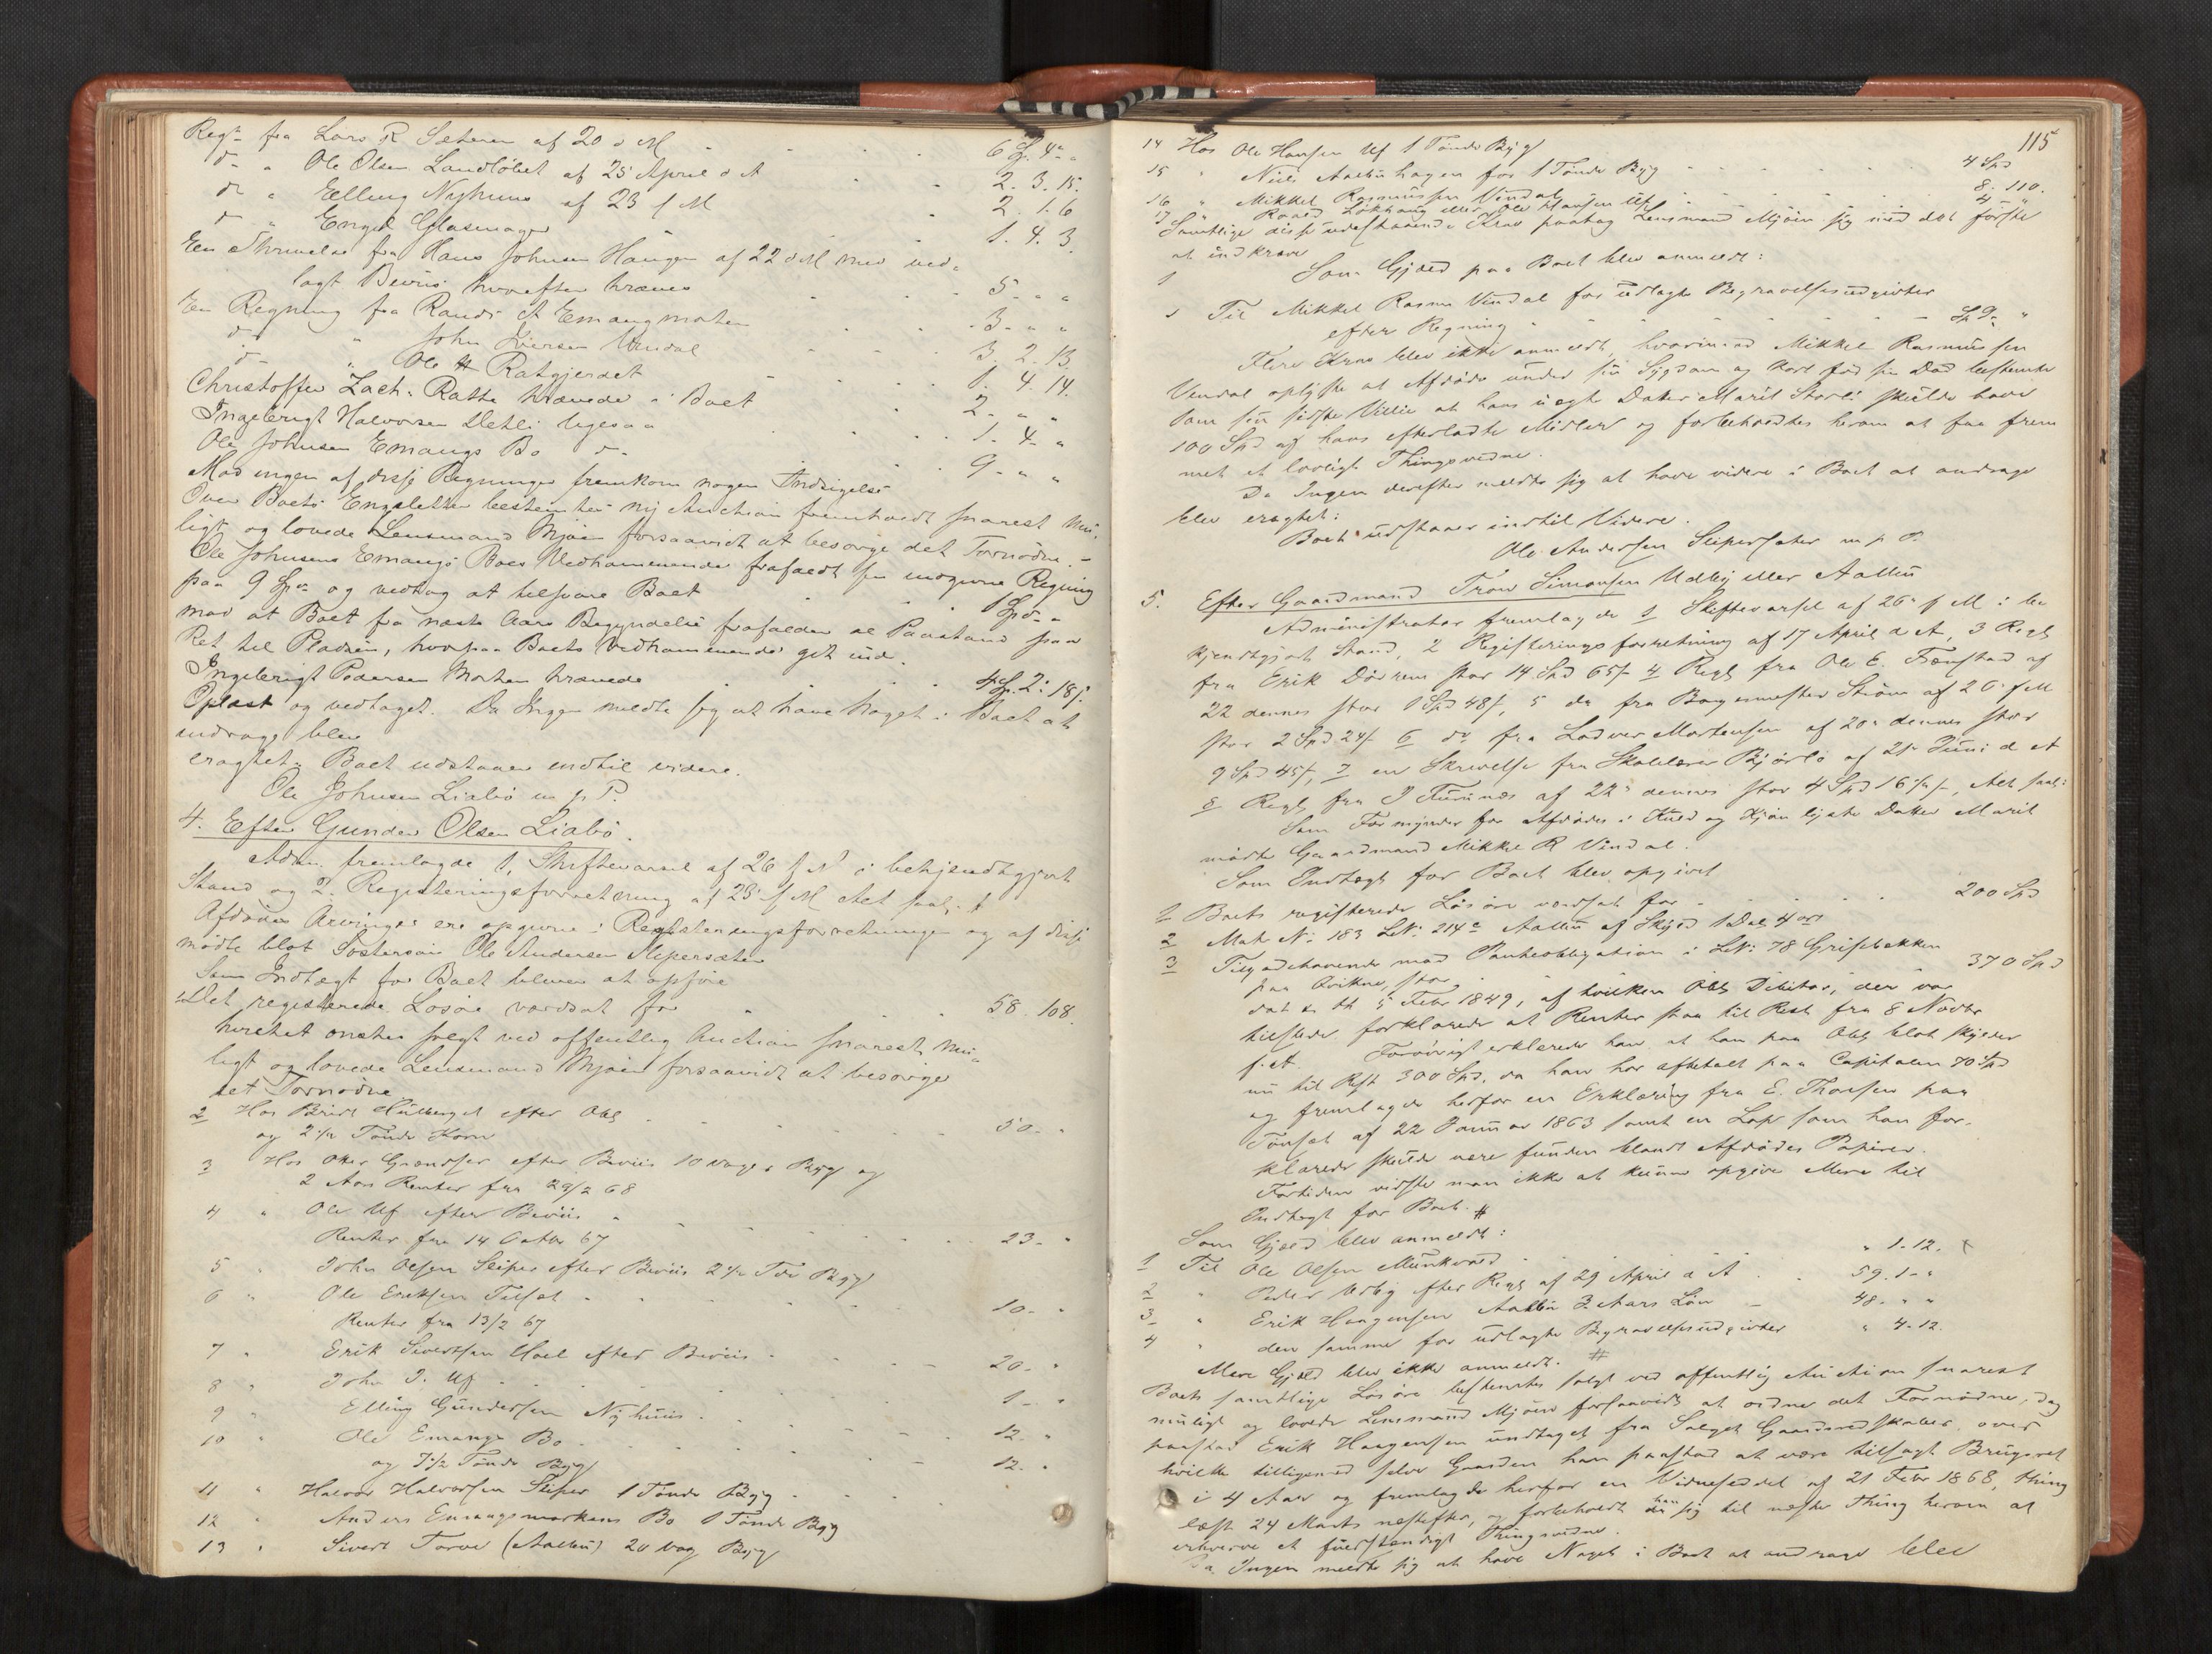 Regn fra Lars R Sæteren af 20 d M 6 Sp. 4 "
d " Ole Olsen Landløbet af 25 April d A 2. 3. 15.
d " Elling Nyhuus af 23 f M 2. 1. 6
d " Engel Glasmager 1. 4. 3.
En Skrivelse fra Hans Johnsen Haugen af 22 d M med ved-
lagt Beviis hvorefter kræves 5 - " "
En Regning fra Randi Emangmoken 3 - " "
d " John Iversen Vindal 3. 2. 13
d " Ole Ratgjerdet 1. 4. 14.
Christoffer Zach. Ratte krævede i Boet 2 - " "
Ingebrigt Halvorsen Detli ligesaa 1. 4 - "
Ole Johnsen Emangs Bo d - 9 - " "
Mod ingen af disse Regninger fremkom nogen Indsigelse
Over Boets Engsletter bestemtes ny Auction fremholdt snarest mu-
ligt og lovede Lensmand Mjøen forsaavidt at besørge det Fornødne. -
Ole Johnsens Emangs Boes Vedkommende frafaldt sin indgivne Regning
paa 9 Spd og vedtog at tilsvare Boet 1 Spd - "
mod at Boet fra næste Aars Begyndelse frafalder al Paastand paa
Ret til Pladsen, hvorpaa Boets Vedkommende gik ind.
Ingebrigt Pedersen Moken krævede 4 Sp. 2. 18 s.
Oplæst og vedtaget. Da Ingen meldte sig at have Noget i Boet at
andrage blev
eragtet: Boet udstaaer indtil videre.
Ole Johnsen Liabø m p P.
4. Efter Gunder Olsen Liabø.
Adm. fremlagde 1, Skiftevarsel af 26 f M i bekjendtgjort
Stand og 2. Registeringsforretning af 23 f M Alt saal:
Afdødes Arvinger ere opgivne i Registeringsforretningen og af disse
mødte blot Søstersøn Ole Andersen Slipersæter
Som Indtægt for Boet bliver at opføre
1 Det registerede Løsøre værdsat for 58. 108.
hvilket ønskes solgt ved offentlig Auction snarest mu-
ligt og lovede Lensmand Mjøen forsaavidt at besørge
det Fornødne
2 Hos Berit efter Obl 50 - "
og 2 1/2 Tønde Korn
3 Hos efter Beviis 10 Voger Byg og
2 Aars Renter fra 29/2 68
4 " Ole Uf efter Beviis "
Renter fra 14 Octbr 67 23 - "
5 " John Olsen Sliper efter Beviis 2 1/2 Tde Byg
6 " Ole Eriksen Tilset 10 - "
Renter fra 13/2 67
7 " Erik Sivertsen Hoel efter Beviis 20 - "
8 " John J. Uf 1 - "
9 " Elling Gundersen Nyhuus 12 - "
10 " Ole Emangs Bo 12. "
og 1 1/2 Tønde Byg
11 " Halvor Halvorsen Sliper 1 Tønde Byg
12 " Anders Emangsmokens Bo 1 Tønde Byg
13 " Sivert Torve (Aalbu) 20 Vog Byg
115
14 Hos Ole Hansen Uf 1 Tønde Byg
15 " Niels Aalbuhagen for 1 Tønde Byg 4 Spd
16 " Mikkel Rasmussen Vindal 8. 110.
17 " Løkhaug eller Ole Hansen Uf 4 - "
Samtlige disse udestaaende Krav paatog Lensmand Mjøen sig med det første
at indkræve
Som Gjæld paa Boet blev anmeldt:
1 Til Mikkel Rasm Vindal for udlagte Begravelsesudgivter
efter Regning Sp 9 - "
Flere Krav blev ikke anmeldt, hvorimod Mikkel Rasmussen
Vindal oplyste at Afdøde under sin Sygdom og kort før sin Død bestemte
som sin sidste Villie at hans uægte Datter Marit Storli skulde have
100 Spd af hans efterladte Midler og forbeholdtes herom at faa frem
met et lovligt Thingsvidne.
Da Ingen derefter meldte sig at have videre i Boet at andrage
blev eragtet:
Boet udstaaer indtil Videre.
Ole Andersen Slipersæter m p P.
5. Efter Gaardmand Trøn Simonsen Udbÿ eller Aalbu
Administrator fremlagde 1 Skiftevarsel af 26 f M i be
kjendtgjort Stand, 2 Registeringsforretning af 17 April d A, 3 Regl
fra Erik Dørrem stor 14 Spd 65 s 4 Regl fra Ole E. Fænstad af
22 dennes stor 1 Spd 48 s, 5 do fra Bagermester Strøm af 26 f M
stor 2 Spd 24 s 6 do fra Ladver Mortensen af 20 dennes stor
9 Spd 45 s, 7 en Skrivelse fra Skolelærer Bjørlo af 21 Juni d A
8 Regl fra J Furunes af 22 dennes stor 4 Spd 16 s, Alt saal:
Som Formynder for Afdødes i Kuld og Kjøn lyste Datter Marit
mødte Gaardmand Mikkel R Vindal.
Som Indtægt for Boet blev opgivet
1 Boets registerede Løsøre værdsat for 200 Spd
2 Matr No 183 LNo 214 c Aalbu af Skyld 1 Dal. 4 ort
3 Tilgodehavende mod Pantobligation i LNo 78 Grisbækken
paa Qvikne, stor 370 Spd
dat. 5 Febr 1849, af hvilken Obl. Debitor, der var
tilstede forklarede at Renter staa til Rest fra 8 Novbr
f. A. Forøvrigt erklærede han at han paa Obl blot skylder
nu til Rest 300 Spd, da han har afbetalt paa Capitalen 70 Spd
og fremlagde herfor en Erklæring fra E. Thoresen paa
Tønset af 22 Januar 1863 samt en Lap som han for-
klarede skulde være funden blandt Afdødes Papirer.
Fortiden vidste man ikke at kunne opgive Mere til
Indtægt for Boet. #
Som Gjæld blev anmeldt:
1 Til Ole Olsen Munkvold " 1. 12.
2 " Peder Udbÿ efter Regl af 29 April d A 59. 1 - "
3 " Erik Haagensen Aalbu 3 Aars Løn 48. " "
4 " den samme for udlagte Begravelsesudgivter " 4. 12.
Mere Gjæld blev ikke anmeldt. #
Boets samtlige Løsøre bestemtes solgt ved offentlig Auction snarest
muligt og lovede Lensmand Mjøen forsaavidt at ordne det Fornødne, dog
paastod Erik Haagensen undtaget fra Salget Gaardsredskaber over
hvilke tilligemed selve Gaarden han paastod at være tilsagt Brugsret
i 4 Aar og fremlagde herfor en Vidnesedel af 21 Febr 1868, thing
læst 24 Marts næstefter, og forbeholdt han sig til næste Thing herom at
erhverve et fuldstændigt Thingsvidne.
Da Ingen meldte sig at have Noget i Boet at andrage blev